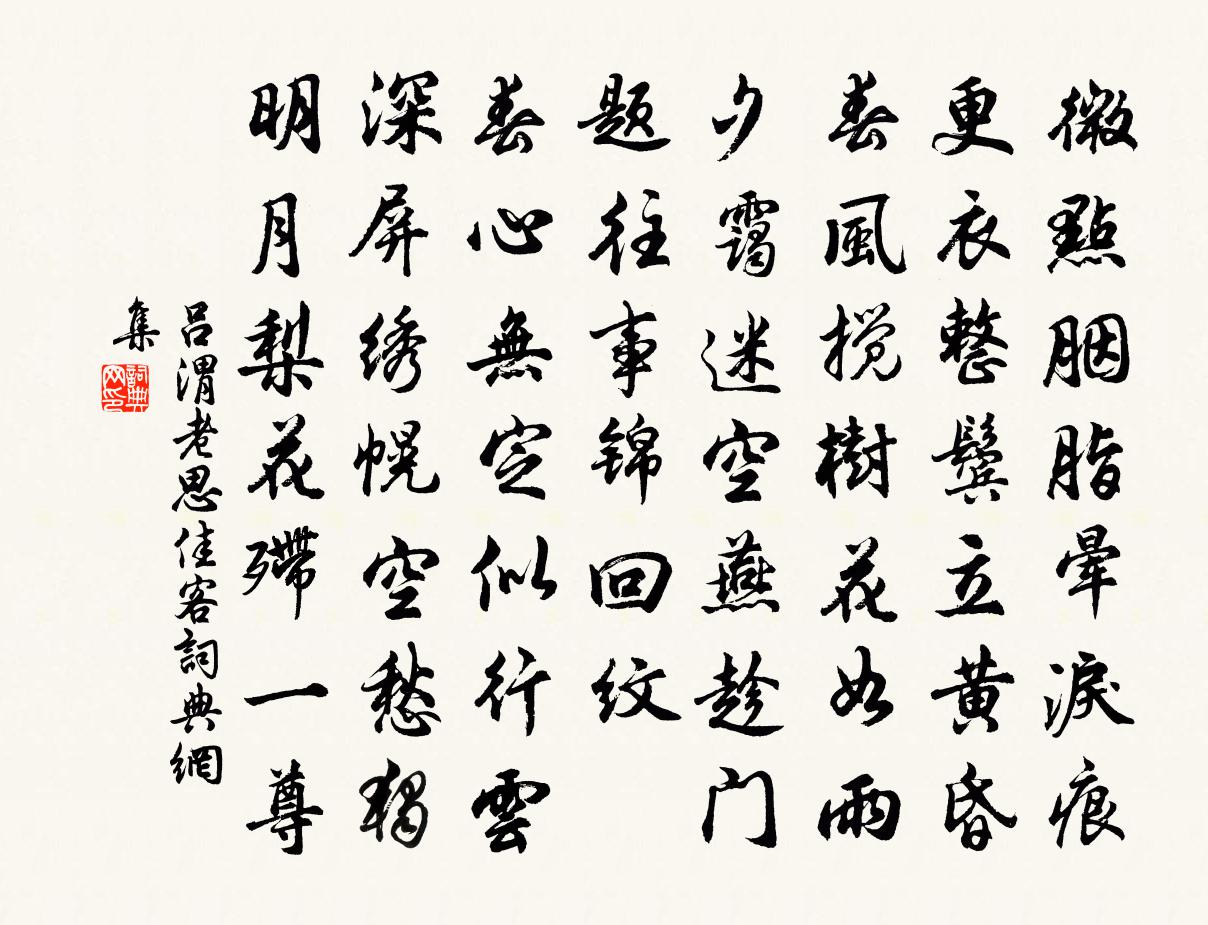 微點胭脂暈淚痕
更衣整鬓立黄昏
春風搅樹花如雨
夕霭迷空燕趁门
题往事锦回纹
春心無定似行雲
深屏绣幌空愁獨
明月梨花殢一尊
吕渭老思佳客詞典網
集
詞典网印